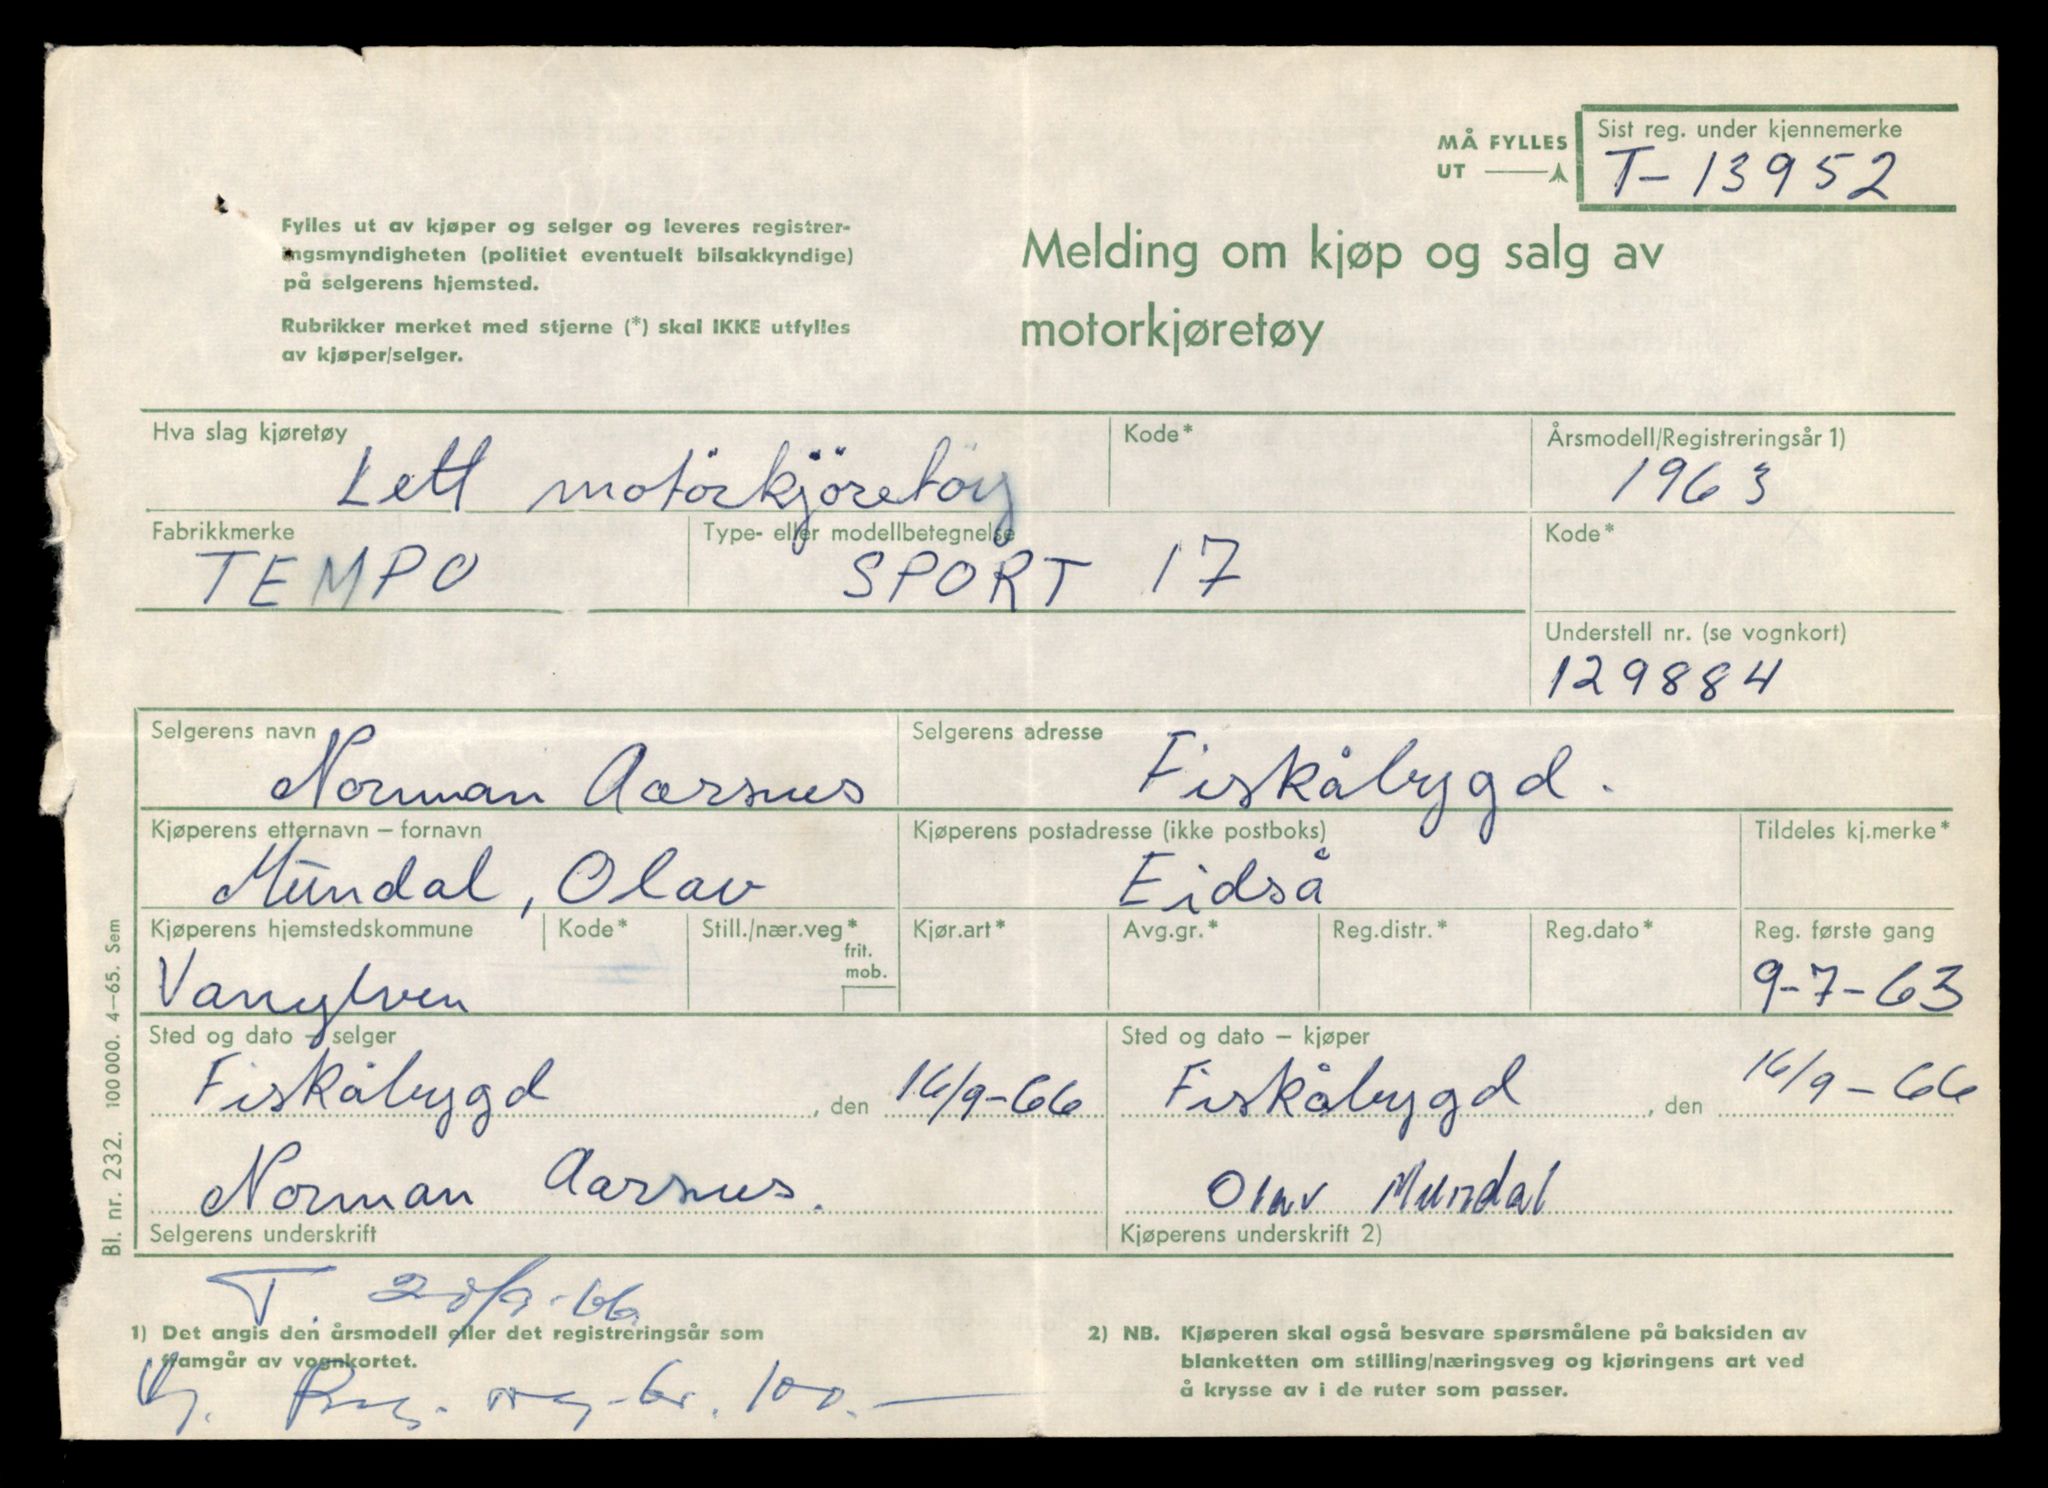 MÅ FYLLES
UT
Sist reg. under kjennemerke
T-13952
Fylles ut av kjøper og selger og leveres registrer-
ingsmyndigheten (politiet eventuelt bilsakkyndige)
på selgerens hjemsted.
Rubrikker merket med stjerne (*) skal IKKE utfylles
av kjøper/selger.
Melding om kjøp og salg av
motorkjøretøy
Hva slag kjøretøy
Lett motorkjöretöy
Kode*
Årsmodell/Registreringsår 1)
1963
Fabrikkmerke
TEMPO
Type- eller modellbetegnelse
SPORT 17
Kode*
Understell nr. (se vognkort)
129884
Selgerens navn
Norman Aarsnes
Selgerens adresse
Fiskåbygd.
Kjøperens etternavn – fornavn
Mundal, Olav
Kjøperens postadresse (ikke postboks)
Eidså
Tildeles kj.merke*
Kjøperens hjemstedskommune
Vanylven
Kode*
Still./nær.veg*
frit.
mob.
Kjør.art*
Avg.gr.*
Reg.distr.*
Reg.dato*
Reg. første gang
9-7-63
Sted og dato – selger
Fiskåbygd, den 16/9-66
Sted og dato – kjøper
Fiskåbygd, den 16/9-66
Norman Aarsnes.
Selgerens underskrift
Olav Mundal
Kjøperens underskrift 2)
T. 20/9-66
1) Det angis den årsmodell eller det registreringsår som
framgår av vognkortet.
100.-
2) NB. Kjøperen skal også besvare spørsmålene på baksiden av
blanketten om stilling/næringsveg og kjøringens art ved
å krysse av i de ruter som passer.
Bl. nr. 232. 100 000. 4–65. Sem